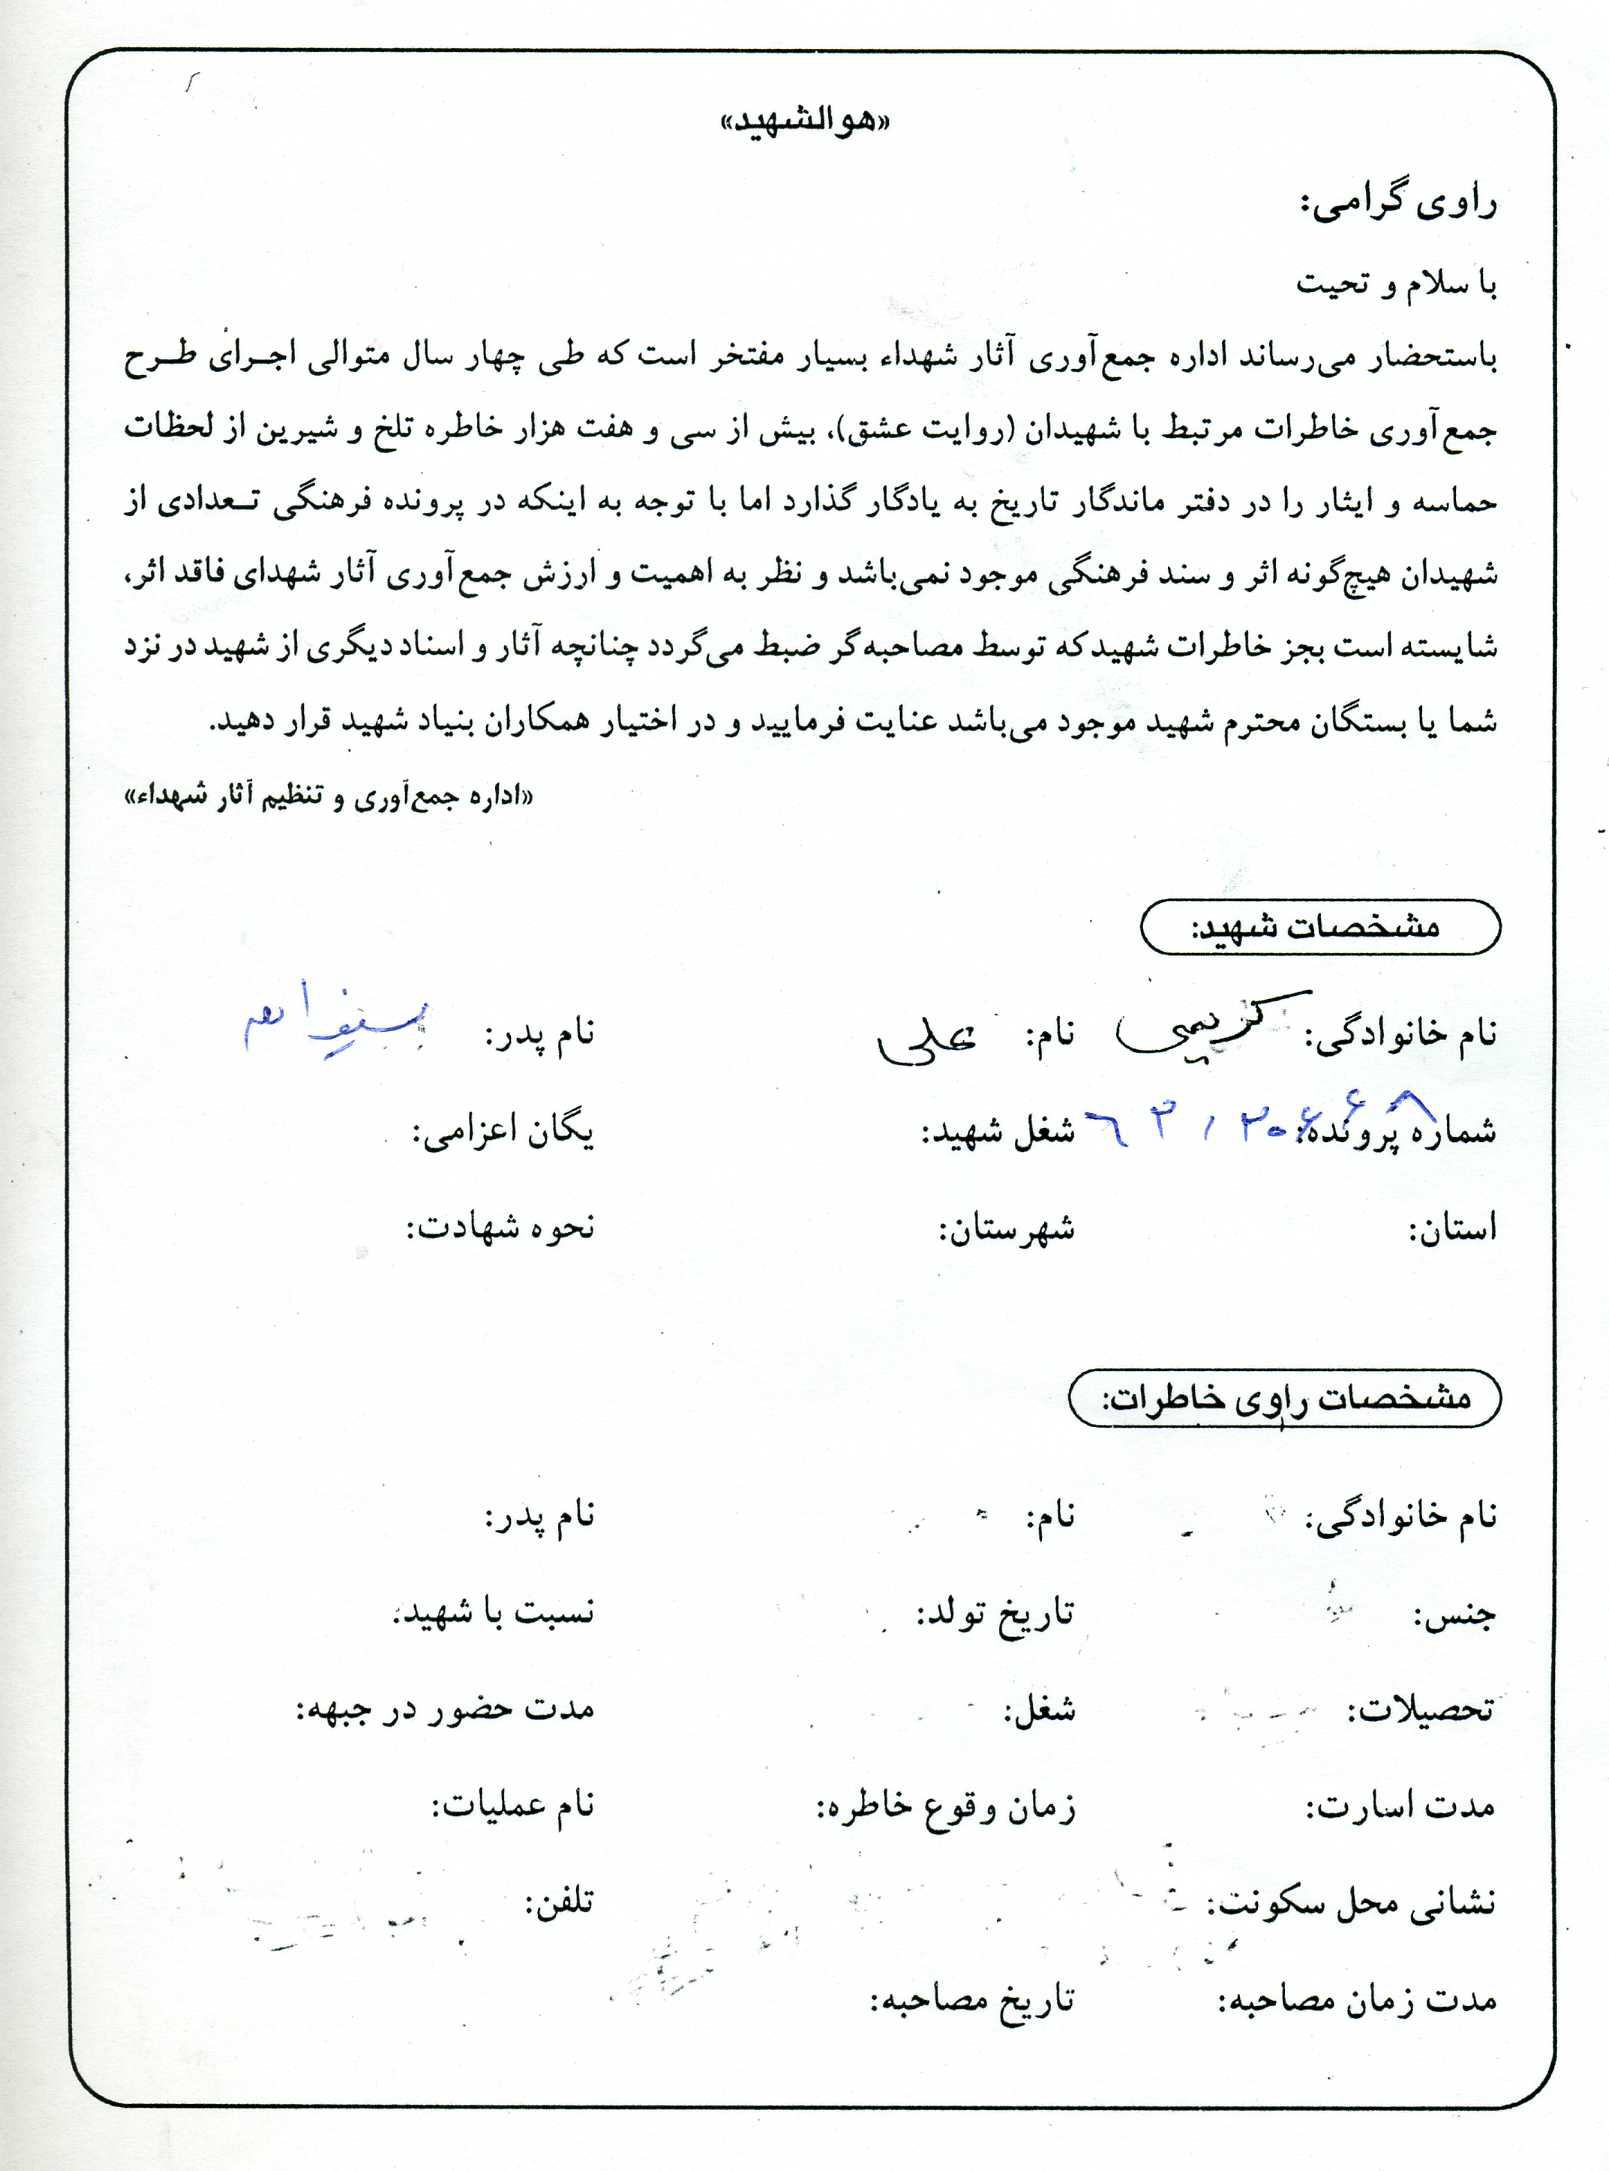 «هوالشهید»
راوی گرامی:
با سلام و تحیت
باستحضار می‌رساند اداره جمع‌آوری آثار شهداء بسیار مفتخر است که طی چهار سال متوالی اجرای طرح
جمع‌آوری خاطرات مرتبط با شهیدان (روایت عشق)، بیش از سی و هفت هزار خاطره تلخ و شیرین از لحظات
حماسه و ایثار را در دفتر ماندگار تاریخ به یادگار گذارد اما با توجه به اینکه در پرونده فرهنگی تعدادی از
شهیدان هیچ‌گونه اثر و سند فرهنگی موجود نمی‌باشد و نظر به اهمیت و ارزش جمع‌آوری آثار شهدای فاقد اثر،
شایسته است بجز خاطرات شهید که توسط مصاحبه‌گر ضبط می‌گردد چنانچه آثار و اسناد دیگری از شهید در نزد
شما یا بستگان محترم شهید موجود می‌باشد عنایت فرمایید و در اختیار همکاران بنیاد شهید قرار دهید.
«اداره جمع‌آوری و تنظیم آثار شهداء»
مشخصات شهید:
نام خانوادگی: کریمی نام: علی نام پدر:
شماره پرونده: شغل شهید: یگان اعزامی:
استان: شهرستان: نحوه شهادت:
مشخصات راوی خاطرات:
نام خانوادگی: نام: نام پدر:
جنس: تاریخ تولد: نسبت با شهید:
تحصیلات: شغل: مدت حضور در جبهه:
مدت اسارت: زمان وقوع خاطره: نام عملیات:
نشانی محل سکونت: تلفن:
مدت زمان مصاحبه: تاریخ مصاحبه: